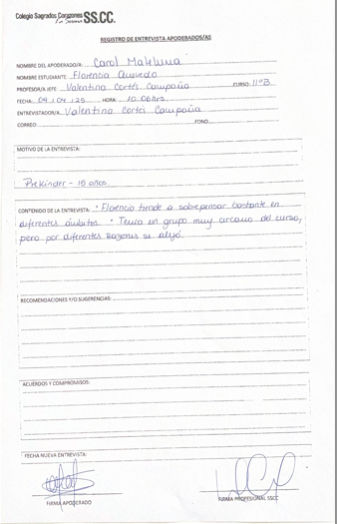 Colegio Sagrados Corazones SS.CC.
REGISTRO DE ENTREVISTA APODERADOS/AS
NOMBRE DEL APODERADO/A: Carol
NOMBRE ESTUDIANTE: Florencia
PROFESOR/A JEFE: Valentina Cortés Campaña CURSO: IIºB
FECHA: 09/04/25 HORA: 10:06hrs
ENTREVISTADOR/A: Valentina Cortés Campaña
CORREO: FONO:
MOTIVO DE LA ENTREVISTA:
Prekinder - 15 años
CONTENIDO DE LA ENTREVISTA: • Florencia tiende a sobrepensar bastante en
diferentes ámbitos. • Tenía un grupo muy cercano del curso,
pero por diferentes razones se alejó.
RECOMENDACIONES Y/O SUGERENCIAS:
ACUERDOS Y COMPROMISOS:
FECHA NUEVA ENTREVISTA:
FIRMA APODERADO FIRMA PROFESIONAL SSCC